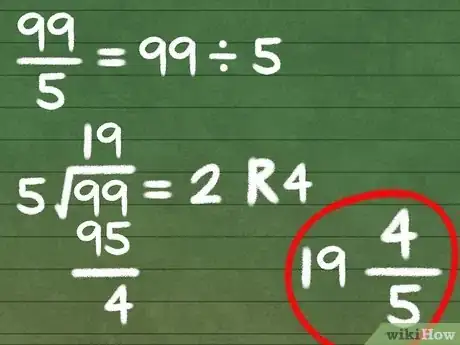 99/5 = 99 ÷ 5
19
5√99 = 2 R4
95
4
19 4/5
wikiHow